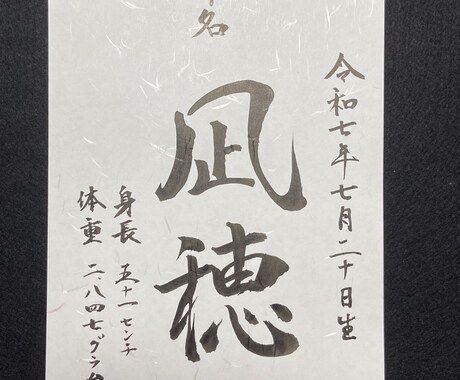 令和七年七月二十日生
名
凪穂
身長 五十一センチ
体重 二、八四七グラム